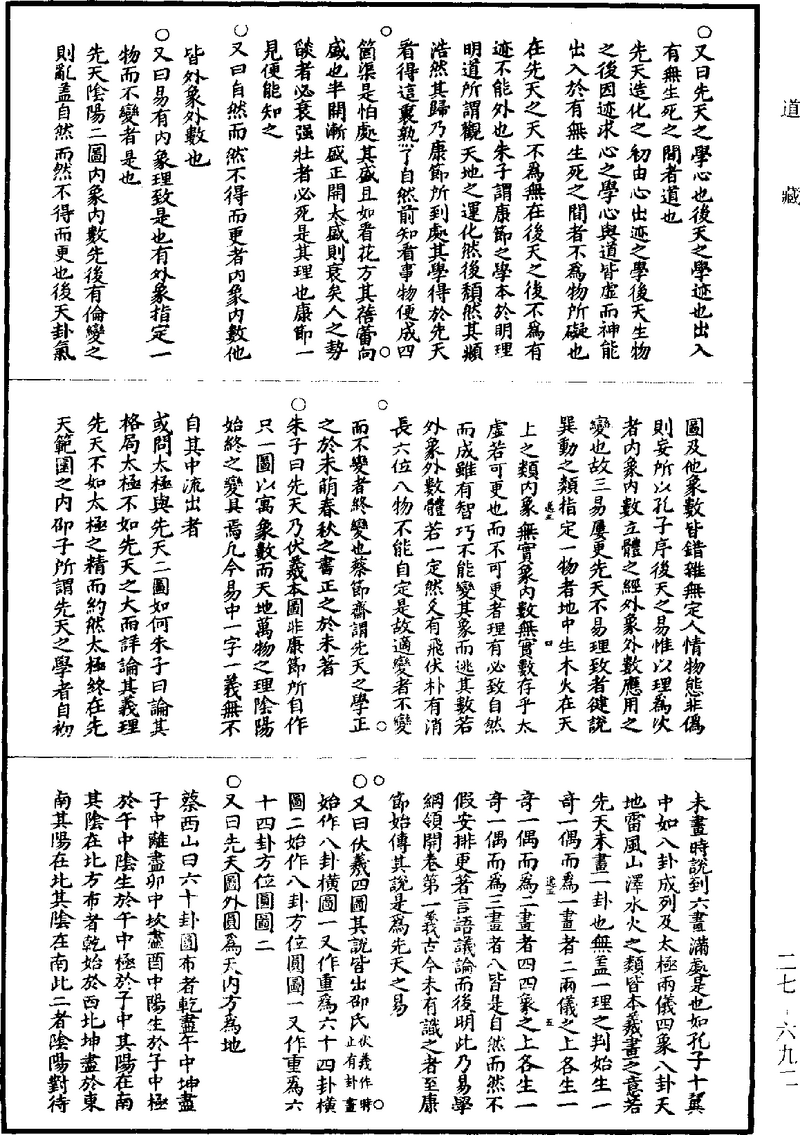 道藏
○又曰先天之學心也後天之學迹也出入
有無生死之間者道也
先天造化之初由心出迹之學後天生物
之後因迹求心之學心與道皆虛而神能
出入於有無生死之間者不為物所礙也
在先天之天不為無在後天之後不為有
迹不能外也朱子謂康節之學本於明理
明道所謂觀天地之運化然後頹然其順
浩然其歸乃康節所到處其學得於先天
看得這裏熟了自然前知看事物便成四
○箇渠是怕處其盛且如看花方其蓓蕾向○
盛也半開漸盛正開太盛則衰矣人之勢
燄者必衰强壯者必死是其理也康節一
見便能知之
○又曰自然而然不得而更者內象內數他
皆外象外數也
○又曰易有內象理致是也有外象指定一
物而不變者是也
先天陰陽二圖內象內數先後有倫變之
則亂蓋自然而然不得而更也後天卦氣
圖及他象數皆錯雜無定人情物態非偽
則妄所以孔子序後天之易惟以理為次
者內象內數立體之經外象外數應用之
變也故三易屢更先天不易理致者健說
巽動之類指定一物者地中生木火在天
上之類內象無實象內數無實數存乎太
虛若可更也而不可更者理有必致自然
而成雖有智巧不能變其象而逃其數若
外象外數體若一定然爻有飛伏朴有消
長六位八物不能自定是故適變者不變
○而不變者終變也蔡節齋謂先天之學正○
之於未萌春秋之書正之於未著
○朱子曰先天乃伏羲本圖非康節所自作
只一圖以寓象數而天地萬物之理陰陽
始終之變具焉凡今易中一字一義無不
自其中流出者
或問太極與先天二圖如何朱子曰論其
格局太極不如先天之大而詳論其義理
先天不如太極之精而約然太極終在先
天範圍之內邵子所謂先天之學者自初
未畫時說到六畫滿處是也如孔子十翼
中如八卦成列及太極兩儀四象八卦天
地雷風山澤水火之類皆本羲畫之意若
先天未畫一卦也無蓋一理之判始生一
奇一偶而為一畫者二兩儀之上各生一
奇一偶而為二畫者四四象之上各生一
奇一偶而為三畫者八皆是自然而然不
假安排更著言語議論而後明此乃易學
綱領開卷第一義古今未有識之者至康
節始傳其說是為先天之易
○○又曰伏羲四圖其說皆出邵氏伏羲作時止有卦畫○
始作八卦橫圖一又作重為六十四卦橫
圖二始作八卦方位圓圖一又作重為六
十四卦方位圓圖二
○又曰先天圖外圓為天內方為地
蔡西山曰六十卦圓布者乾盡午中坤盡
子中離盡卯中坎盡酉中陽生於子中極
於午中陰生於午中極於子中其陽在南
其陰在北方布者乾始於西北坤盡於東
南其陽在北其陰在南此二者陰陽對待
二七·六九二